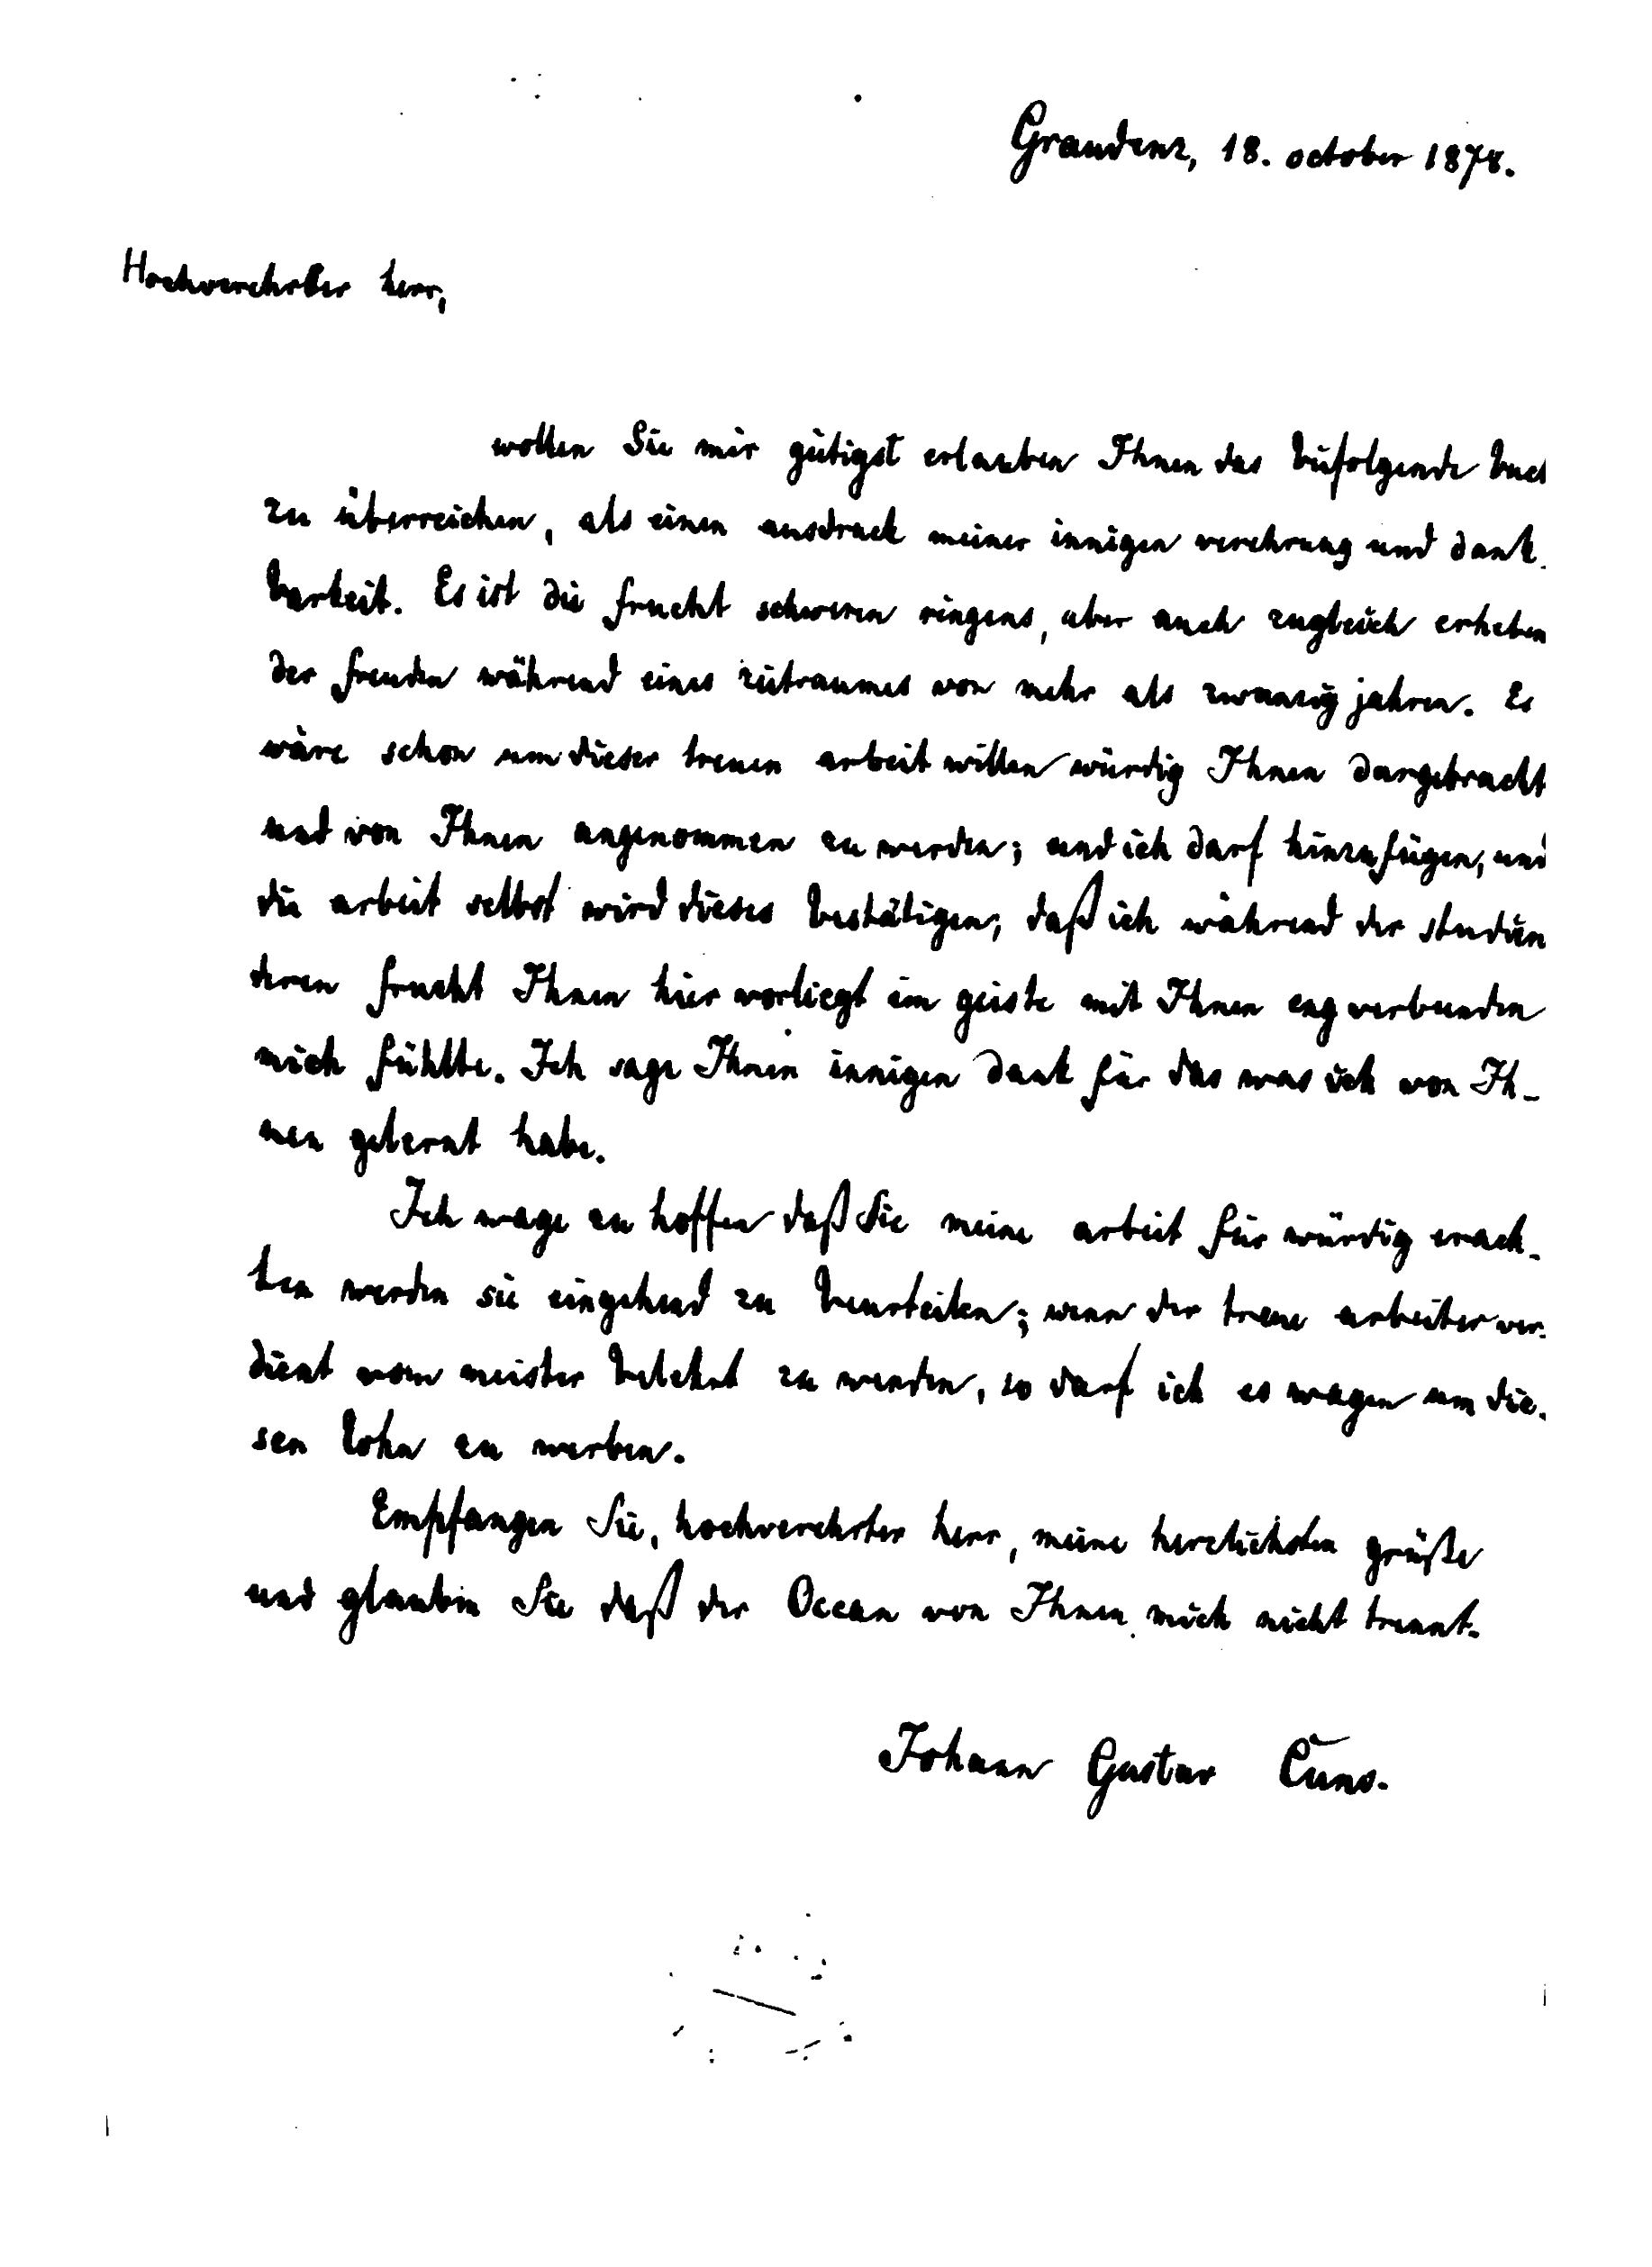 Graudenz, 18. october 1878.
Hochverehrter herr,
wollen Sie mir gütigst erlauben Ihnen das beifolgende buch
zu überreichen, als einen ausdruck meiner innigen verehrung und dank-
barkeit. Es ist die frucht schweren ringens, aber auch zugleich erheben
der freuden während eines zeitraumes von mehr als zwanzig jahren. Es
wäre schon um dieser treuen arbeit willen würdig Ihnen dargebracht
und von Ihnen angenommen zu werden; und ich darf hinzufügen, und
die arbeit selbst wird dieses bestätigen, daß ich während der studien
deren frucht Ihnen hier vorliegt im geiste mit Ihnen eng verbunden
mich fühlte. Ich sage Ihnen innigen dank für das was ich von Ih-
nen gelernt habe.
Ich wage zu hoffen daß Sie meine arbeit für würdig erach-
ten werden sie eingehend zu beurteilen; wenn der treue arbeiter ver-
dient vom meister belehrt zu werden, so darf ich es wagen um die-
sen lohn zu werben.
Empfangen Sie, hochverehrter herr, meine herzlichsten grüße
und glauben Sie daß der Ocean von Ihnen mich nicht trennt.
Johann Gustav Cuno.